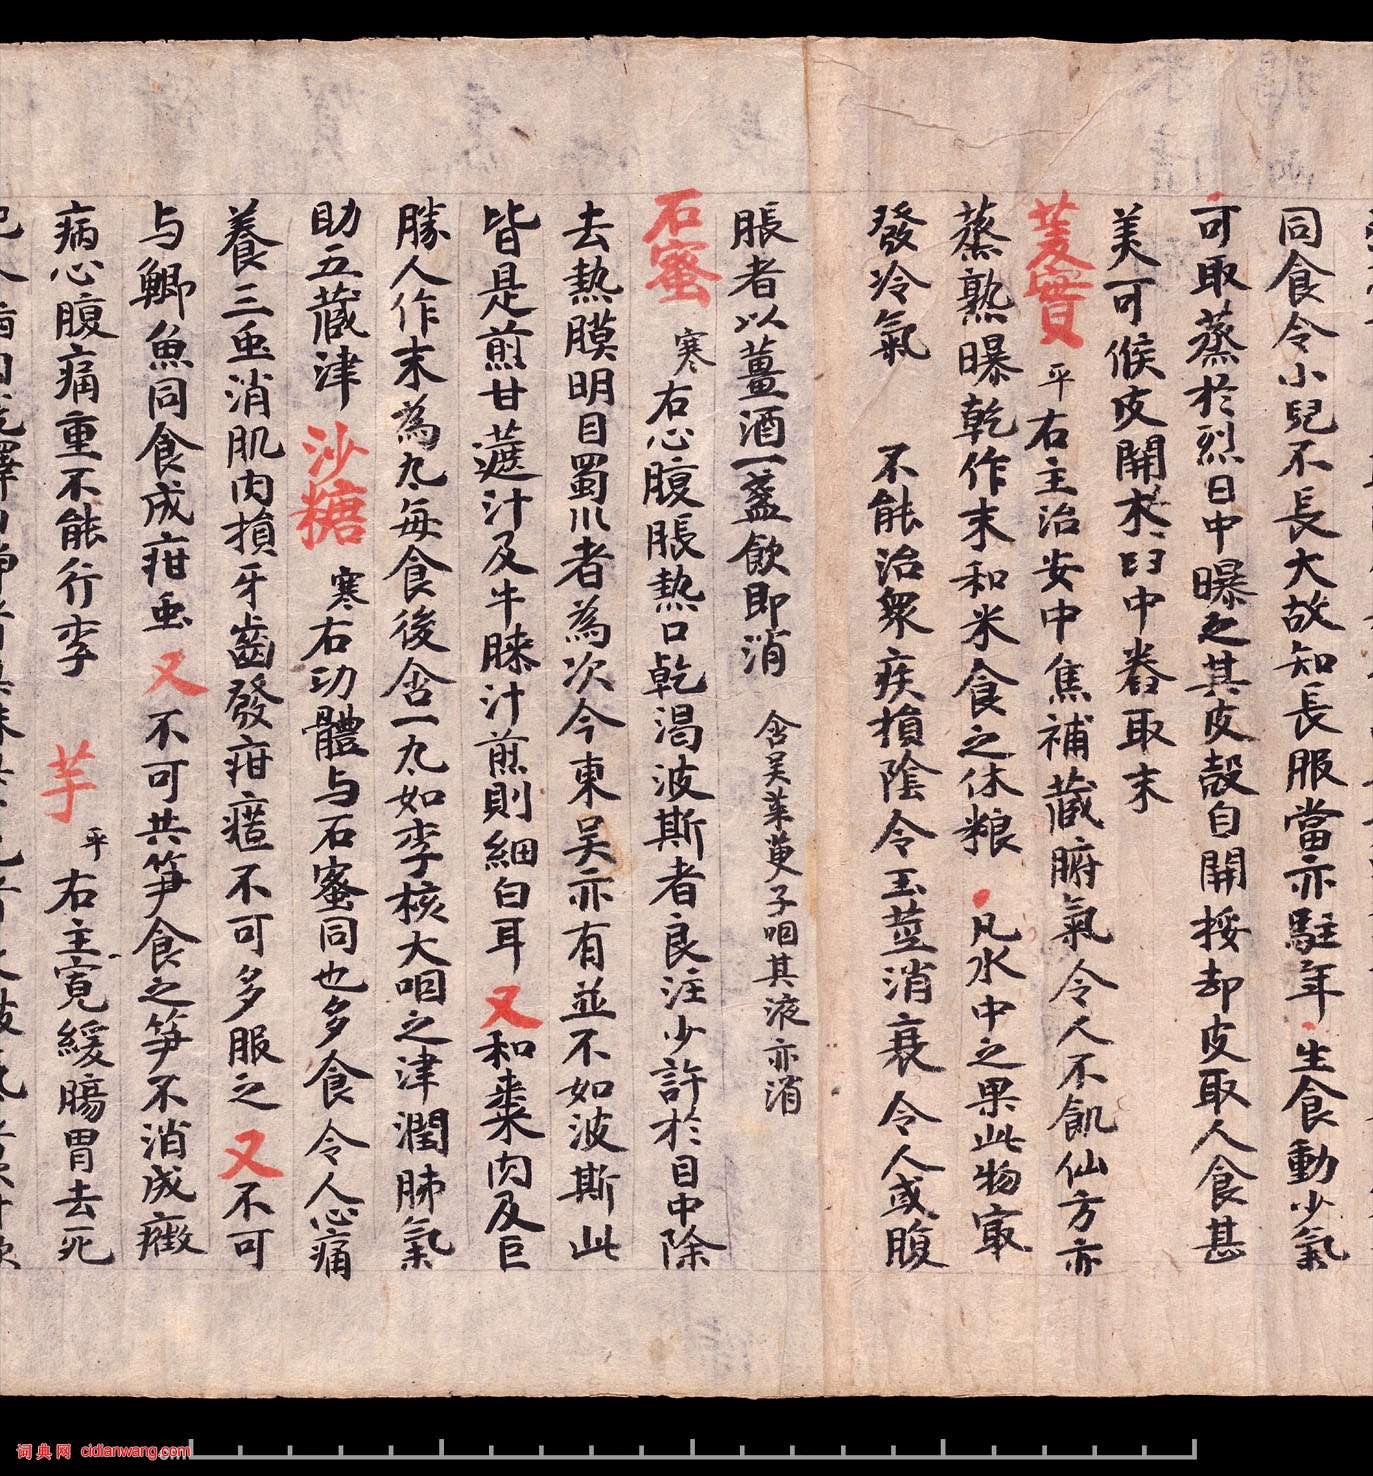 同食令小兒不長大故知長服當亦駐年生食動少氣
可取蒸於烈日中曝之其皮殼自開挼却皮取人食甚
美可候皮開木臼中舂取末
芰實 平 右主治安中焦補藏腑氣令人不飢仙方亦
蒸熟曝乾作末和米食之休粮 凡水中之果此物寂
發冷氣 不能治衆疾損陰令玉莖消衰令人或腹
脹者以薑酒一盞飲即消 含吴茱萸子咽其液亦消
石蜜 寒 右心腹脹熱口乾渴波斯者良注少許於目中除
去熱膜明目蜀川者為次今東吴亦有並不如波斯此
皆是煎甘蔗汁及牛膝汁煎則細白耳又和棗肉及巨
勝人作末為丸每食後含一丸如李核大咽之津潤肺氣
助五藏津 沙糖 寒 右功體与石蜜同也多食令人心痛
養三虫消肌肉損牙齒發疳䘌不可多服之又不可
与鯽魚同食成疳虫又不可共笋食之笋不消成癥
病心腹痛重不能行李 芋 平 右主寬緩腸胃去死
词典网 cidianwang.com